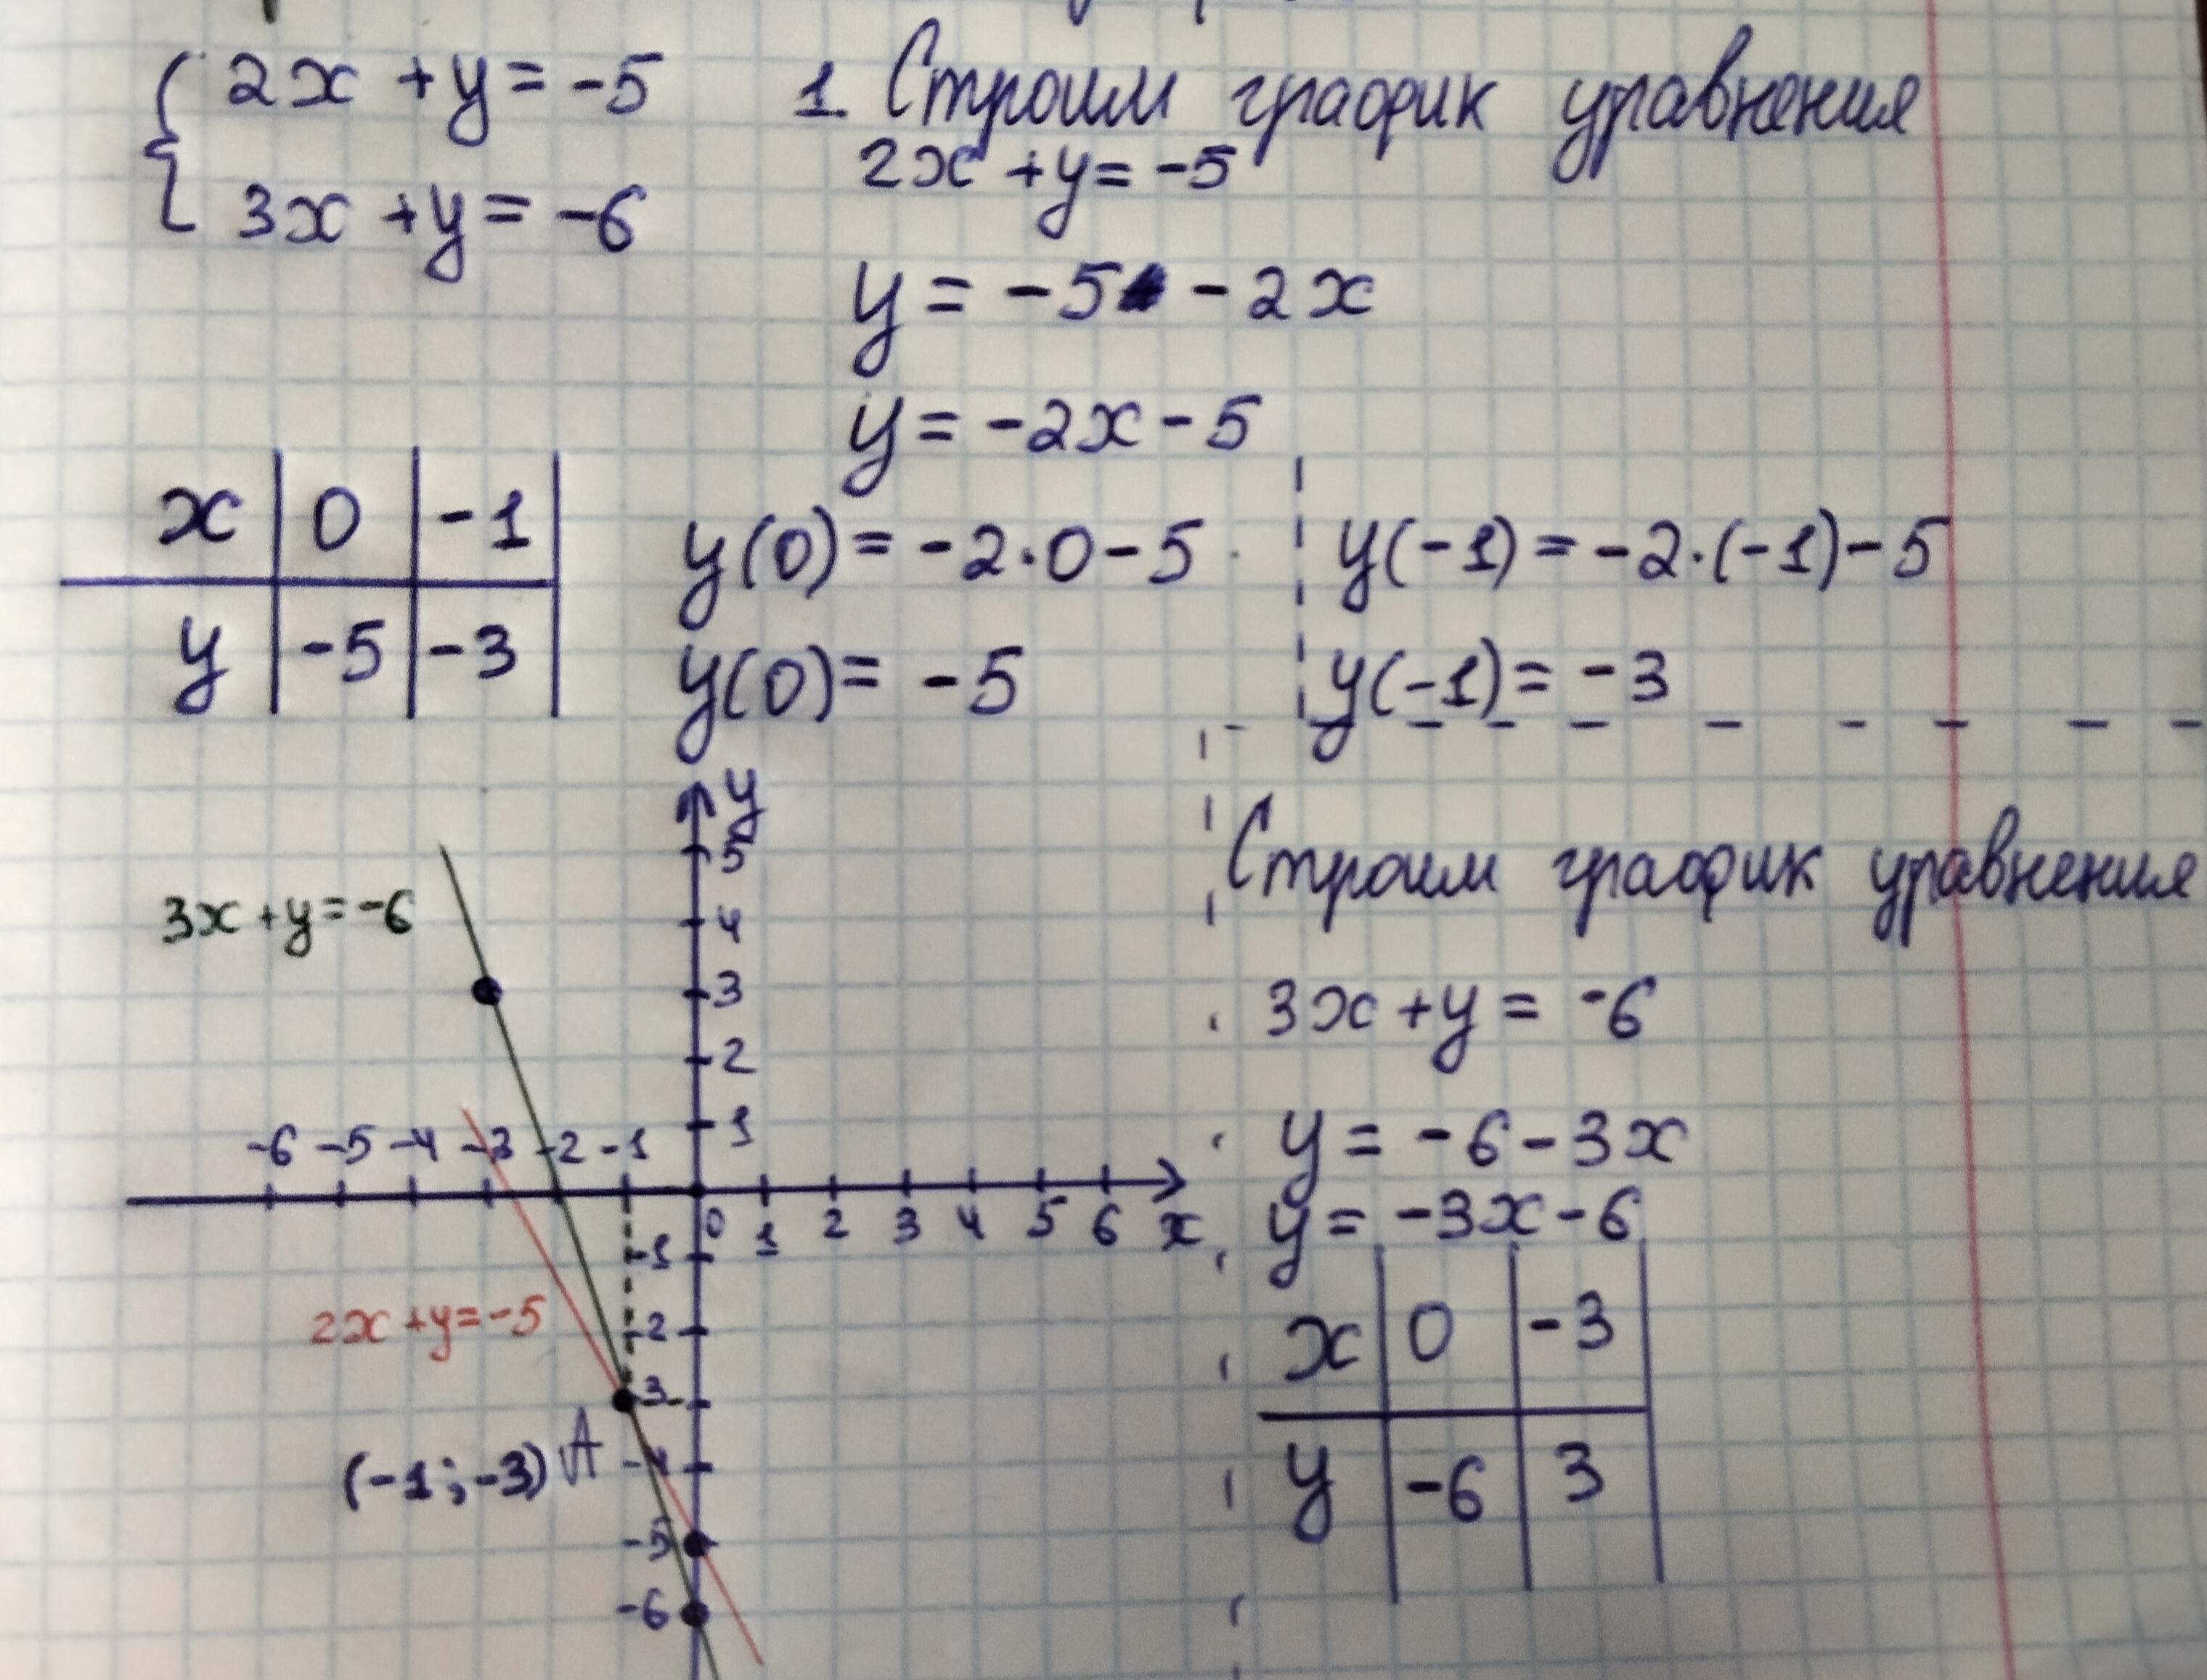 2x + y = -5
3x + y = -6
1. Строим график уравнения
2x + y = -5
y = -5 - 2x
y = -2x - 5
x 0 -1
y -5 -3
y(0) = -2·0 - 5
y(0) = -5
y(-1) = -2·(-1) - 5
y(-1) = -3
y
5
4
3
2
1
-6 -5 -4 -3 -2 -1
0 1 2 3 4 5 6 x
-1
-2
-3
-4
-5
-6
3x + y = -6
2x + y = -5
(-1; -3) A
Строим график уравнения
3x + y = -6
y = -6 - 3x
y = -3x - 6
x 0 -3
y -6 3